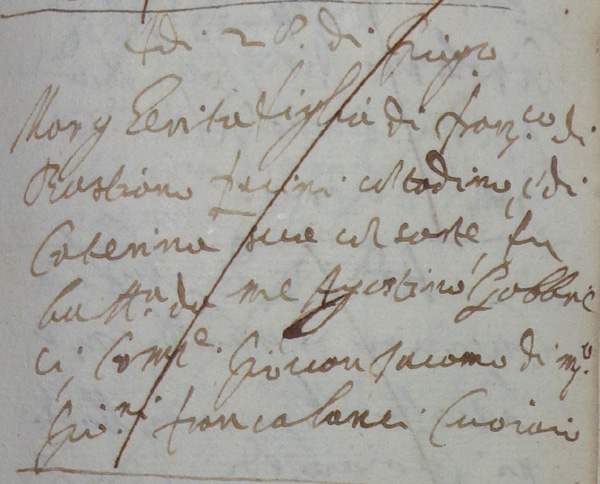 Adi 28. di Giugo
Margherita figlia di Franco. di
Bastiano facini cittadino, e di
Caterina sua consorte, fu
batta. da me Agostino Gabbric
ci, Compe. Giovan Jacomo di mo.
Gio.ni francalanci Cuoiaio